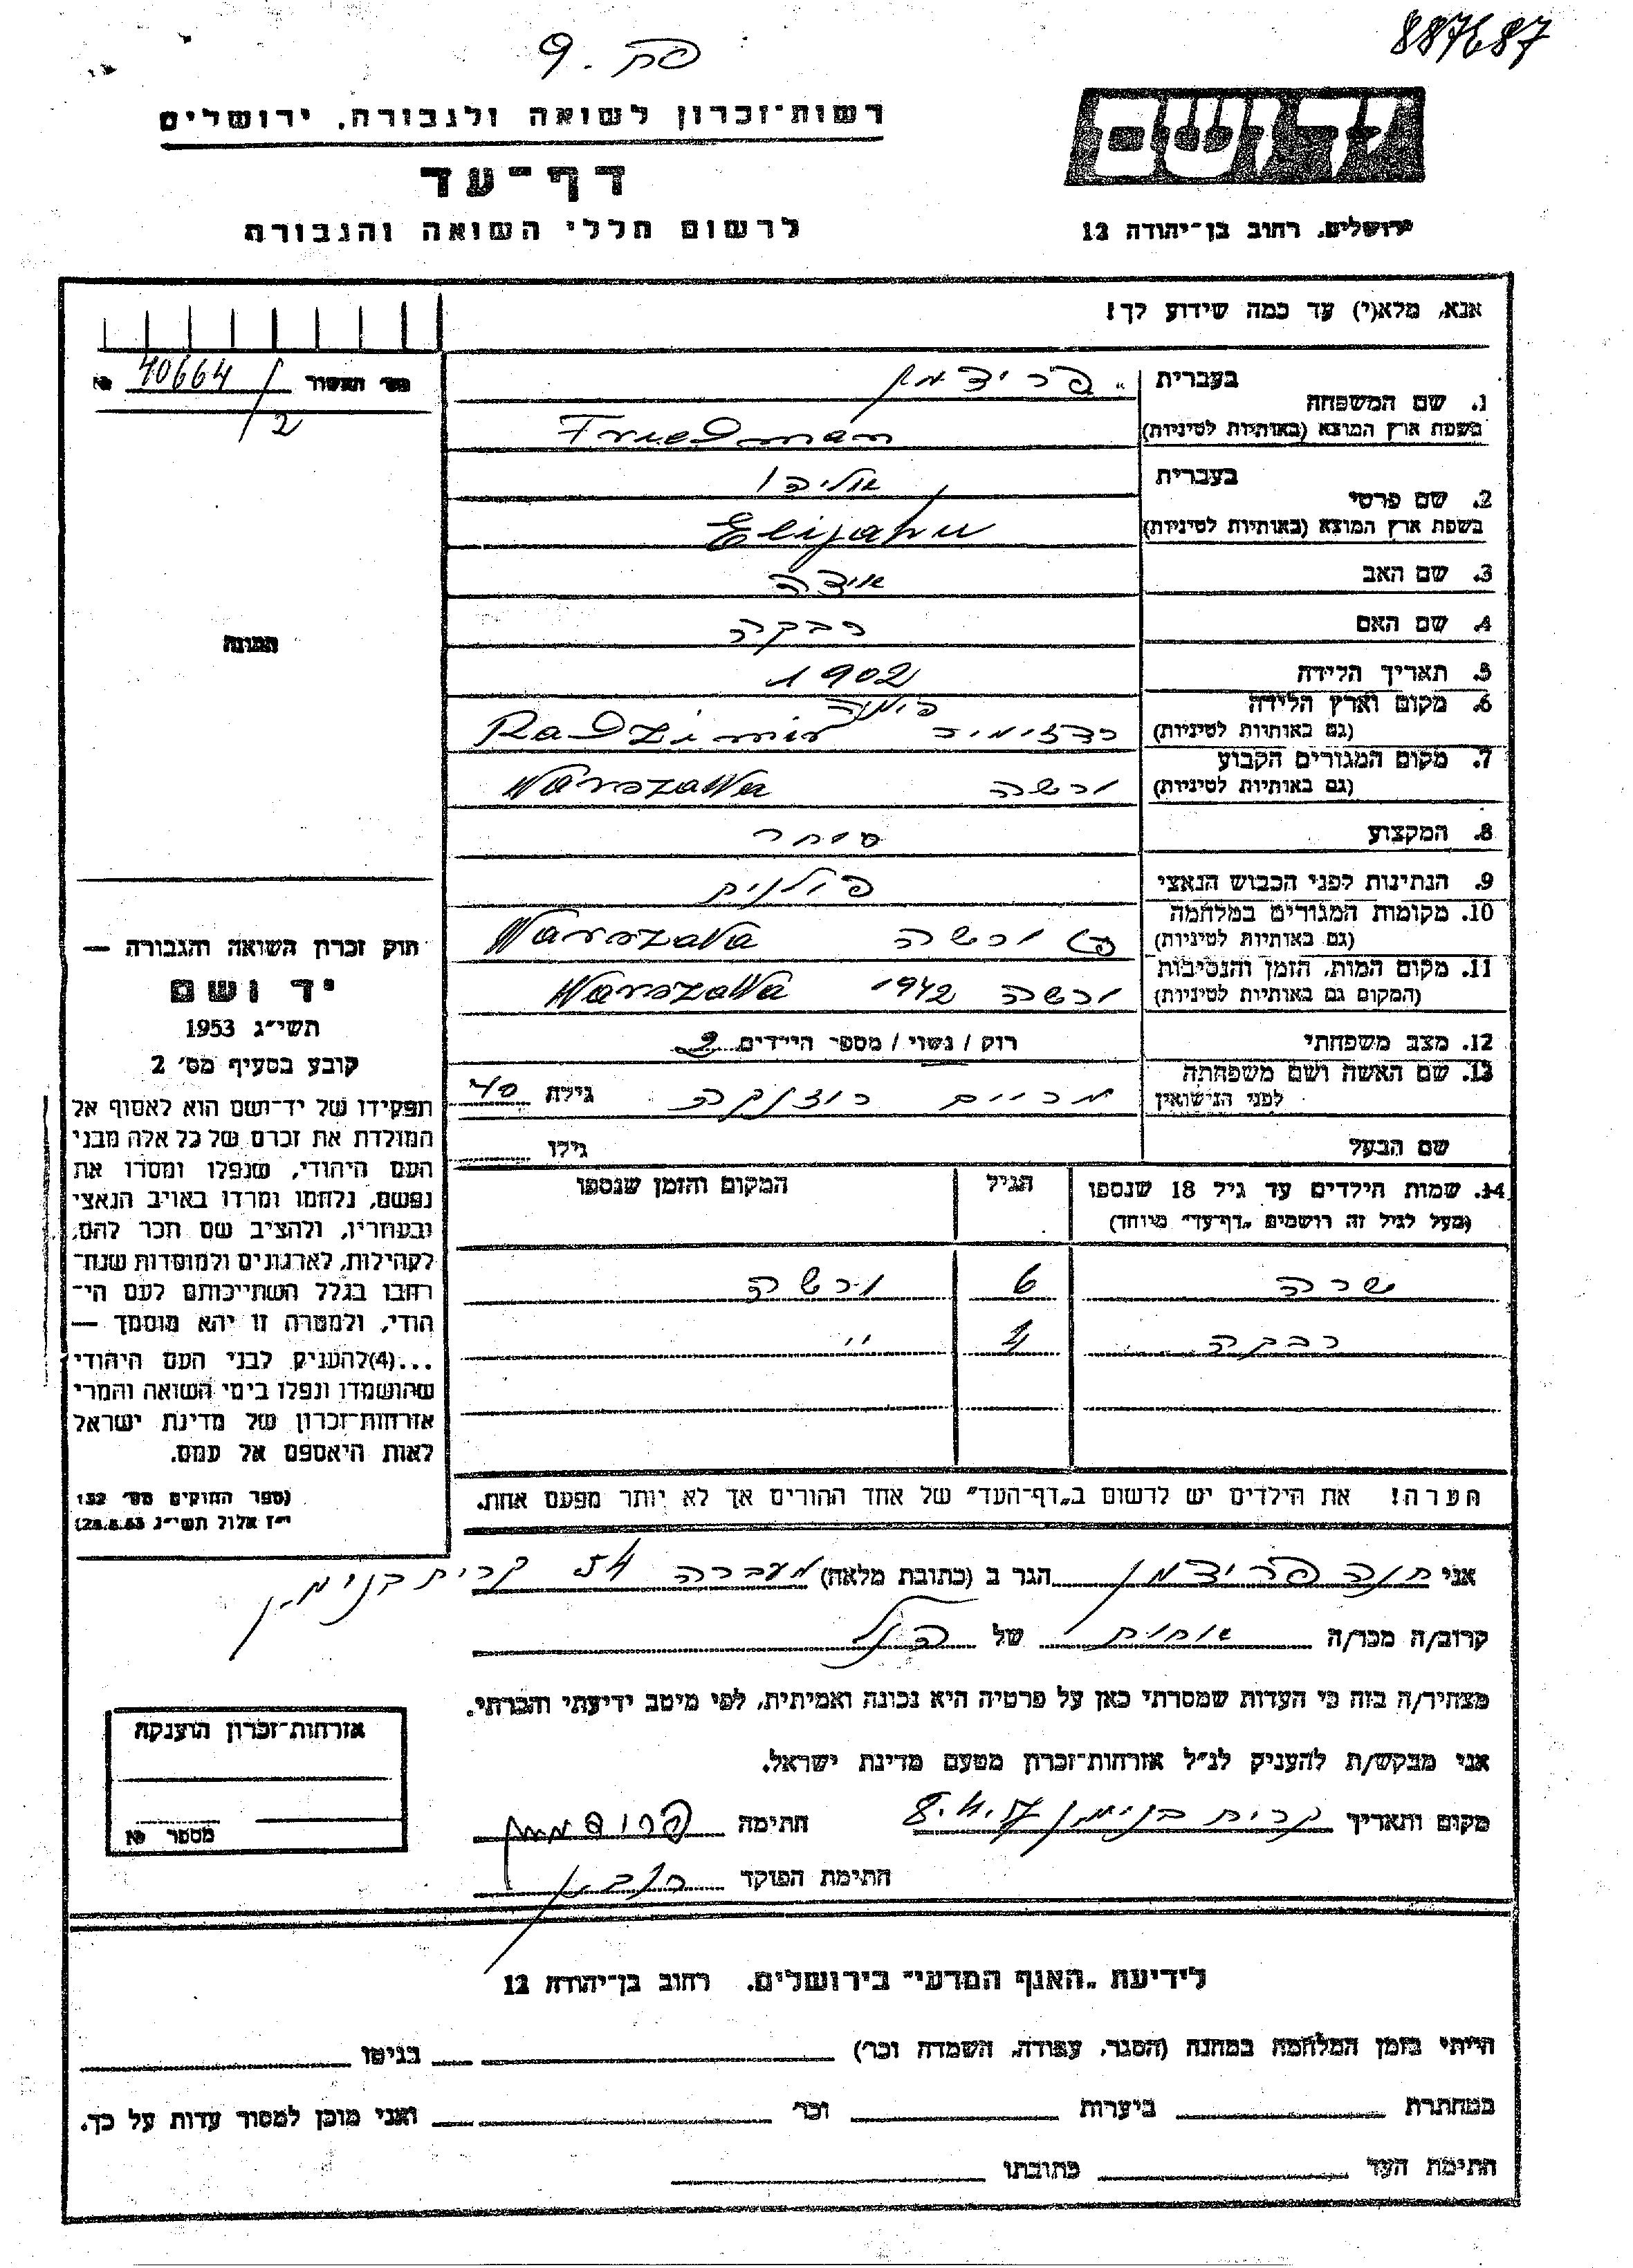 887687
פק. 9
יד ושם
ירושלים. רחוב בן־יהודה 12
רשות־זכרון לשואה ולגבורה, ירושלים
דף־עד
לרשום חללי השואה והגבורה
אנא, מלא(י) עד כמה שידוע לך!
מס׳ האשור 40664/2 №
1. שם המשפחה
בעברית פרידמן
בשפת ארץ המוצא (באותיות לטיניות) Friedman
2. שם פרטי
בעברית אליהו
בשפת ארץ המוצא (באותיות לטיניות) Elijahu
3. שם האב
4. שם האם רבקה
5. תאריך הלידה 1902
6. מקום וארץ הלידה
(גם באותיות לטיניות) רדזימיר Radzimir
7. מקום המגורים הקבוע
(גם באותיות לטיניות) ורשה Warszawa
8. המקצוע סוחר
9. הנתינות לפני הכבוש הנאצי פולנית
10. מקומות המגורים במלחמה
(גם באותיות לטיניות) ורשה Warszawa
11. מקום המות, הזמן והנסיבות
(המקום גם באותיות לטיניות) ורשה 1942 Warszawa
12. מצב משפחתי רוק / נשוי / מספר הילדים 2
13. שם האשה ושם משפחתה
לפני הנישואין מרים גילה 40
שם הבעל גילו
14. שמות הילדים עד גיל 18 שנספו הגיל המקום והזמן שנספו
(מעל לגיל זה רושמים „דף־עד" מיוחד)
שרה 6 ורשה
רבקה 4 ״
הערה! את הילדים יש לרשום ב„דף־העד" של אחד ההורים אך לא יותר מפעם אחת.
תמונה
חוק זכרון השואה והגבורה —
יד ושם
תשי״ג 1953
קובע בסעיף מס׳ 2
תפקידו של יד־ושם הוא לאסוף אל
המולדת את זכרם של כל אלה מבני
העם היהודי, שנפלו ומסרו את
נפשם, נלחמו ומרדו באויב הנאצי
ובעוזריו, ולהציב שם וזכר להם,
לקהילות, לארגונים ולמוסדות שנח־
רבו בגלל השתייכותם לעם הי־
הודי, ולמטרה זו יהא מוסמך —
...(4) להעניק לבני העם היהודי
שהושמדו ונפלו בימי השואה והמרי
אזרחות־זכרון של מדינת ישראל
לאות היאספם אל עמם.
(ספר החוקים מס׳ 132
י״ז אלול תשי״ג 28.8.53)
אני חנה פרידמן הגר ב (כתובת מלאה) מעברה 54 קרית בנימין
קרוב/ה מכר/ה אחות של הנ״ל
מצהיר/ה בזה כי העדות שמסרתי כאן על פרטיה היא נכונה ואמיתית, לפי מיטב ידיעתי והכרתי.
אני מבקש/ת להעניק לנ״ל אזרחות־זכרון מטעם מדינת ישראל.
מקום ותאריך קרית בנימין חתימה
חתימת הפוקד
אזרחות־זכרון הוענקה
מספר №
לידיעת „האגף המדעי" בירושלים. רחוב בן־יהודה 12
הייתי בזמן המלחמה במחנה (הסגר, עבודה, השמדה וכו׳) בגיטו
במחתרת ביערות וכו׳ ואני מוכן למסור עדות על כך.
חתימת העד כתובתו